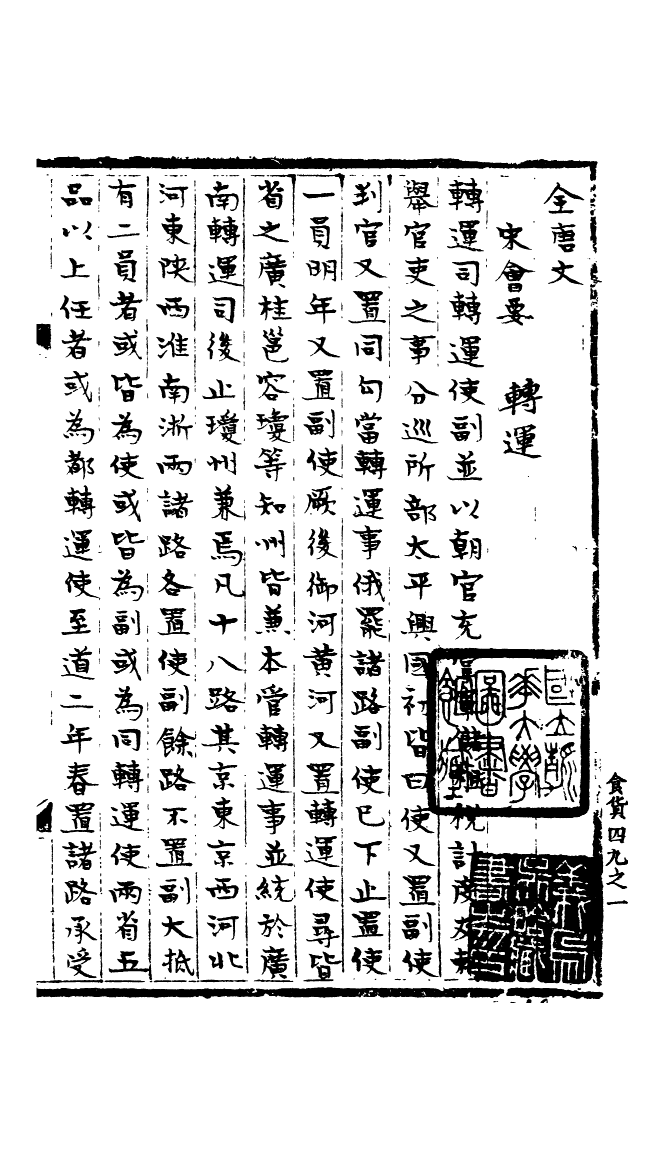 全唐文
宋會要　轉運
轉運司轉運使副並以朝官充稅計度及
舉官吏之事分巡所部太平興國初皆曰使又置副使
判官又置同勾當轉運事俄罷諸路副使已下止置使
一員明年又置副使厥後御河黃河又置轉運使尋皆
省之廣桂邕容瓊等知州皆兼本管轉運事並統於廣
南轉運司後止瓊州兼焉凡十八路其京東京西河北
河東陝西淮南浙兩諸路各置使副餘路不置副大抵
有二員者或皆為使或皆為副或為同轉運使兩省五
品以上任者或為都轉運使至道二年春置諸路承受
食貨四九之一